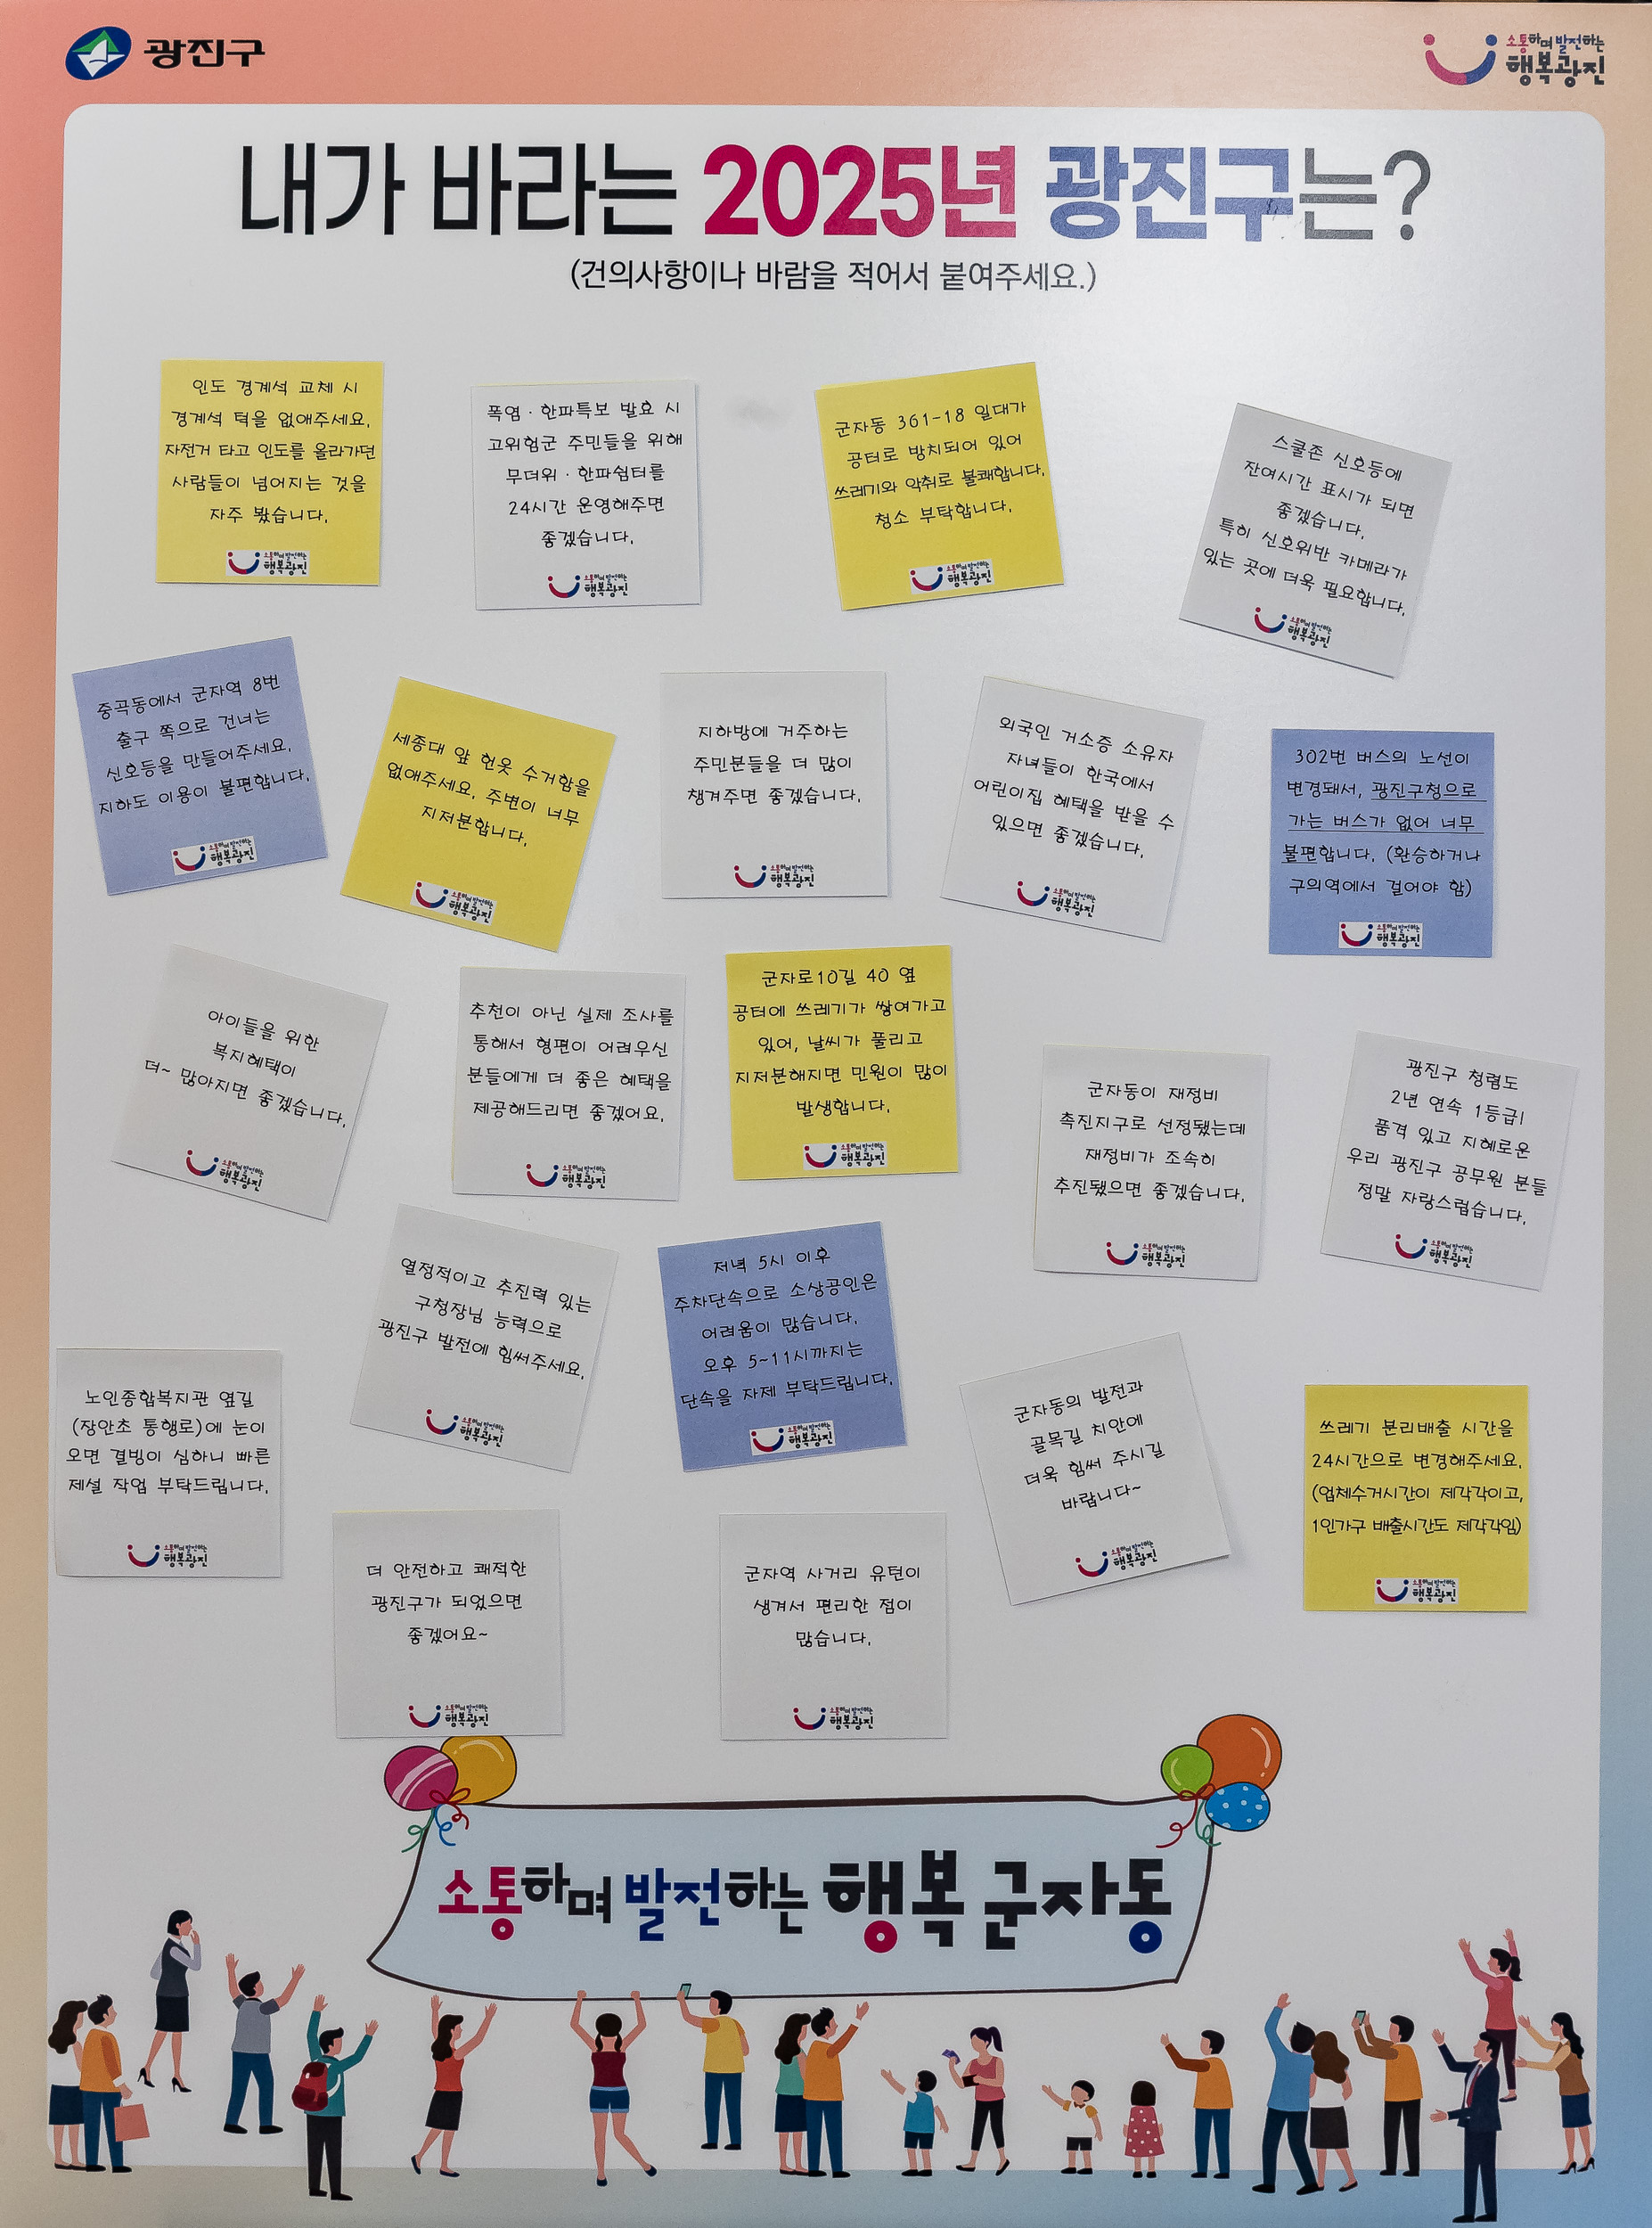 광진구
소통하며 발전하는
행복광진
내가 바라는 2025년 광진구는?
(건의사항이나 바람을 적어서 붙여주세요.)
인도 경계석 교체 시
경계석 턱을 없애주세요.
자전거 타고 인도를 올라가던
사람들이 넘어지는 것을
자주 봤습니다.
소통하며 발전하는
행복광진
폭염 · 한파특보 발효 시
고위험군 주민들을 위해
무더위 · 한파쉼터를
24시간 운영해주면
좋겠습니다.
소통하며 발전하는
행복광진
군자동 361-18 일대가
공터로 방치되어 있어
쓰레기와 악취로 불쾌합니다.
청소 부탁합니다.
소통하며 발전하는
행복광진
스쿨존 신호등에
잔여시간 표시가 되면
좋겠습니다.
특히 신호위반 카메라가
있는 곳에 더욱 필요합니다.
소통하며 발전하는
행복광진
중곡동에서 군자역 8번
출구 쪽으로 건너는
신호등을 만들어주세요.
지하도 이용이 불편합니다.
소통하며 발전하는
행복광진
세종대 앞 헌옷 수거함을
없애주세요. 주변이 너무
지저분합니다.
소통하며 발전하는
행복광진
지하방에 거주하는
주민분들을 더 많이
챙겨주면 좋겠습니다.
소통하며 발전하는
행복광진
외국인 거소증 소유자
자녀들이 한국에서
어린이집 혜택을 받을 수
있으면 좋겠습니다.
소통하며 발전하는
행복광진
302번 버스의 노선이
변경돼서, 광진구청으로
가는 버스가 없어 너무
불편합니다. (환승하거나
구의역에서 걸어야 함)
소통하며 발전하는
행복광진
아이들을 위한
복지혜택이
더~ 많아지면 좋겠습니다.
소통하며 발전하는
행복광진
추천이 아닌 실제 조사를
통해서 형편이 어려우신
분들에게 더 좋은 혜택을
제공해드리면 좋겠어요.
소통하며 발전하는
행복광진
군자로10길 40 옆
공터에 쓰레기가 쌓여가고
있어, 날씨가 풀리고
지저분해지면 민원이 많이
발생합니다.
소통하며 발전하는
행복광진
군자동이 재정비
촉진지구로 선정됐는데
재정비가 조속히
추진됐으면 좋겠습니다.
소통하며 발전하는
행복광진
광진구 청렴도
2년 연속 1등급!
품격 있고 지혜로운
우리 광진구 공무원 분들
정말 자랑스럽습니다.
소통하며 발전하는
행복광진
열정적이고 추진력 있는
구청장님 능력으로
광진구 발전에 힘써주세요.
소통하며 발전하는
행복광진
저녁 5시 이후
주차단속으로 소상공인은
어려움이 많습니다.
오후 5~11시까지는
단속을 자제 부탁드립니다.
소통하며 발전하는
행복광진
노인종합복지관 옆길
(장안초 통행로)에 눈이
오면 결빙이 심하니 빠른
제설 작업 부탁드립니다.
소통하며 발전하는
행복광진
군자동의 발전과
골목길 치안에
더욱 힘써 주시길
바랍니다~
소통하며 발전하는
행복광진
쓰레기 분리배출 시간을
24시간으로 변경해주세요.
(업체수거시간이 제각각이고,
1인가구 배출시간도 제각각임)
소통하며 발전하는
행복광진
더 안전하고 쾌적한
광진구가 되었으면
좋겠어요~
소통하며 발전하는
행복광진
군자역 사거리 유턴이
생겨서 편리한 점이
많습니다.
소통하며 발전하는
행복광진
소통하며 발전하는 행복 군자동